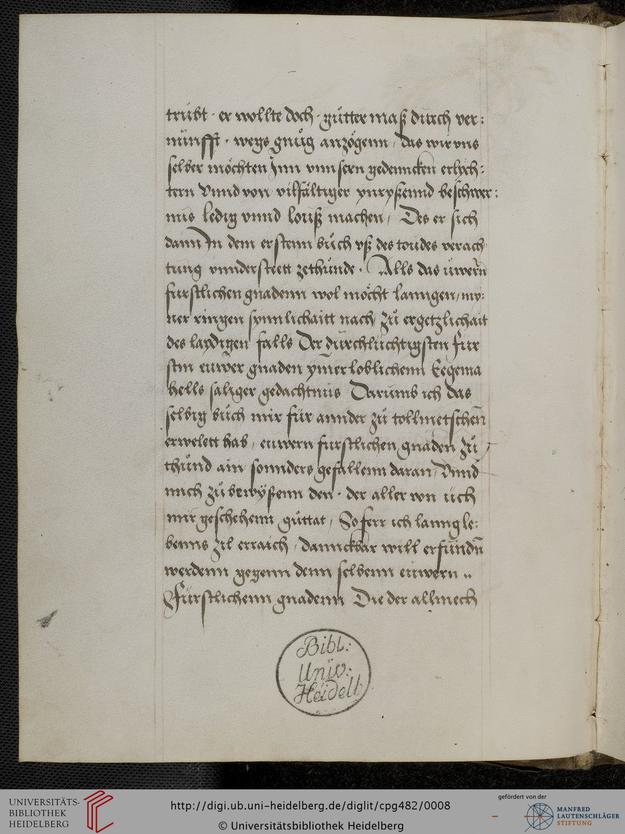 trübt · er wollte doch · gütter maß durch ver:
nünfft · wegs gnüg anzögenn / das wir vns
selber möchten Inn vnnsern gedennckenn erlych:
tern Vnnd von vilfältiger ynryßennd beschwer:
nis ledig vnnd louß machen / Des er sich
dann In dem erstenn büch vß des toudes verach
tung vnndersteett zethünde · Alls das üwern
furstlichen gnadenn wol möcht lanngen / my:
ner ringen synnlichaitt nach / zü ergetzlichait
des laydigen falls Der Dürchlüchtigsten für
stin euwer gnaden ymer loblichenn Gegema
hells säliger gedachtnüs Darumb ich das
selbig büch mir für annder zü tollmetschen
erwelett hab / euwern furstlichen gnaden zü
thünd ain sonnders gefallenn daran / Vnnd
mich zü bewyßenn den · der aller von üch
mir geschehenn güttat / Soferr ich lanng le:
benns zil erraich / dannckbar will erfunden
werdenn gegenn denn selbenn euwern ..
Fürstlichenn gnadenn Die der allmech
Bibl:
Univ:
Heidelb:
UNIVERSITÄTS-
BIBLIOTHEK
HEIDELBERG
http://digi.ub.uni-heidelberg.de/diglit/cpg482/0008
© Universitätsbibliothek Heidelberg
gefördert von der
MANFRED
LAUTENSCHLÄGER
STIFTUNG